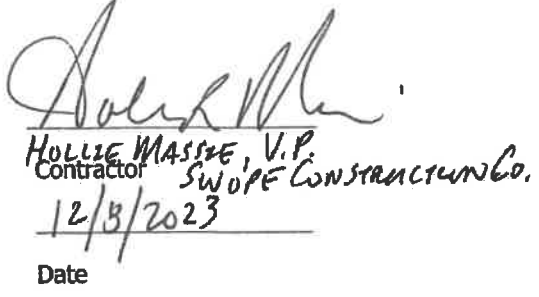 HOLLIE MASSIE, V.P.
Contractor SWOPE CONSTRUCTION CO.
12/8/2023
Date